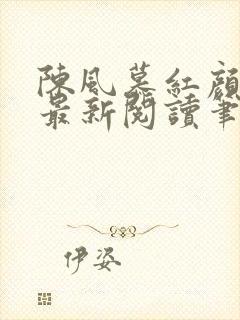 陳風慕紅顏
最新閱讀筆
伊姿